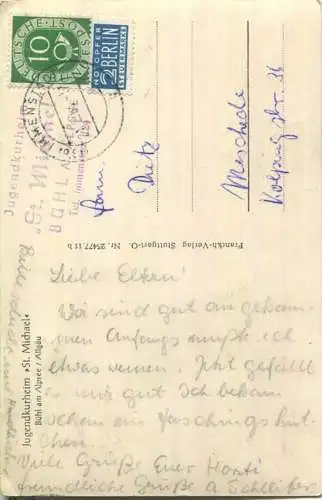 DEUTSCHE BUNDESPOST
10
NOTOPFER
2 BERLIN
STEUERMARKE
IMMENSTADT
Jugendkurheim
"St. Michael"
BÜHL A.
Tel. Immenstadt
Fam.
Dietz
Meschede
Kolpingstr. 36
Franckh-Verlag Stuttgart-O. Nr. 25477 11 b
Jugendkurheim »St. Michael«
Bühl am Alpsee / Allgäu
Liebe Eltern!
Wir sind gut angekom-
men Anfangs mußte ich
etwas weinen. Jetzt gefällt
es mir gut Ich bekam
schon ein Faschingshüt-
chen.
Viele Grüße Euer
freundliche Grüße